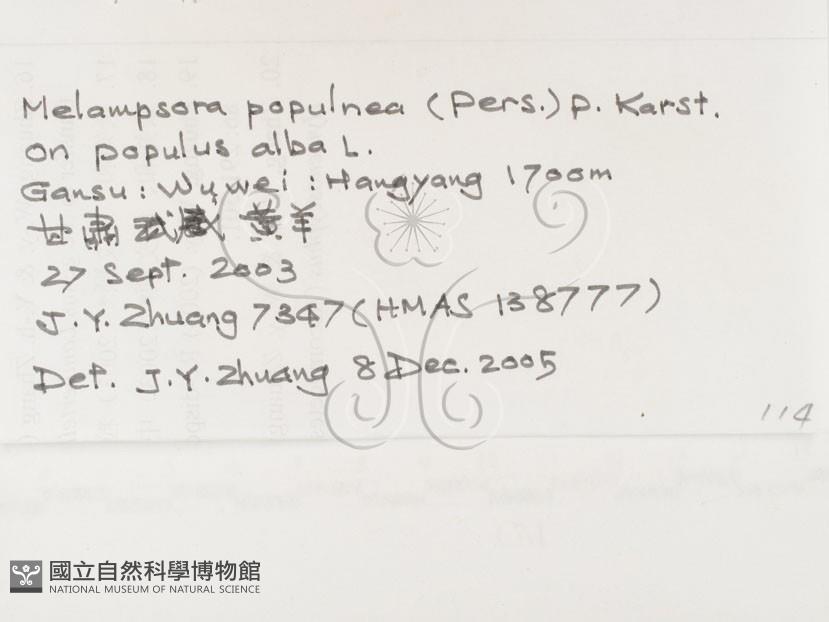 Melampsora populnea (Pers.) P. Karst.
on populus alba L.
Gansu : Wuwei : Hangyang 1700m
甘肃 武威 黄羊
27 Sept. 2003
J.Y. Zhuang 7347 (HMAS 138777)
Det. J.Y. Zhuang 8 Dec. 2005
114
國立自然科學博物館
NATIONAL MUSEUM OF NATURAL SCIENCE